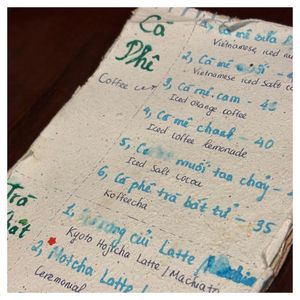 Cà
Phê
Coffee
1, Cà mê sữa
Vietnamese iced
2, Cà mê
Vietnamese Iced Salt
3, Cà mê cam - 45
Iced orange coffee
4, Cà mê chanh - 40
Iced coffee lemonade
5, muối tan chảy -
Iced Salt Cocoa
6, Cà phê trà bất tử - 35
Koffeecha
Trà
1, củi Latte
Kyoto Hojicha Latte / Machiatto
2, Matcha Latte
Ceremonial